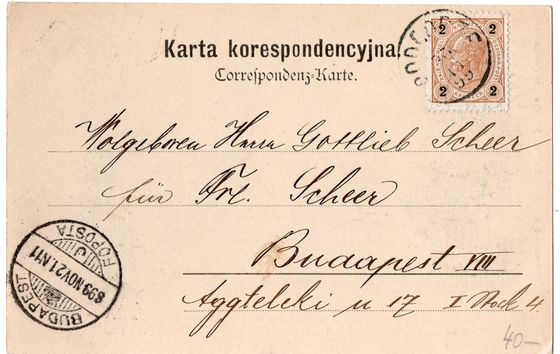 Karta korespondencyjna.
Correspondenz-Karte.
2 2
2 2
Wolgeboren Herrn Gottlieb Scheer
für Frl. Scheer
Budapest VIII
Aggteleki u 17 I Stock 4.
BUDAPEST
899 NOV 21. N11
FŐPOSTA
40-